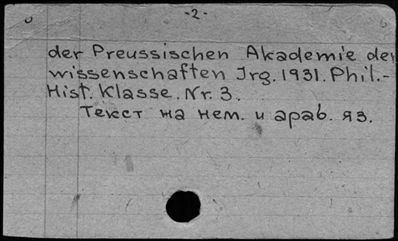 -2-
der Preussischen Akademie der
wissenschaften Jrg. 1931. Phil.-
Hist. Klasse. Nr. 3.
Текст на нем. и араб. яз.